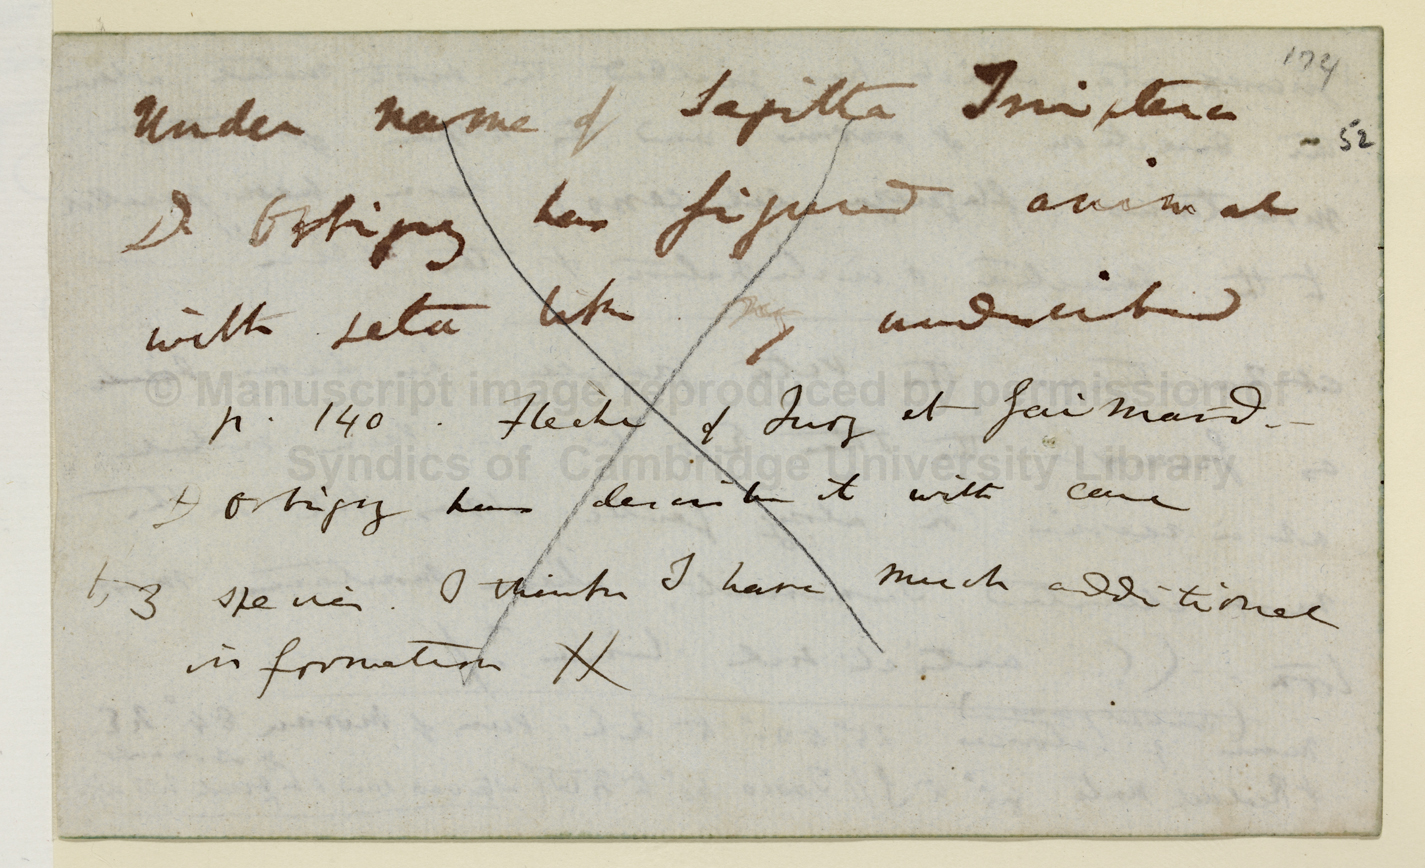 174
- 52
Under name of Sagitta Triptera
D Orbigny has figured animal
with setæ like my undescribed
p. 140. Fleche of Quoy et Gaimard.—
D Orbigny has described it with care
3 species. I think I have much additional
information
© Manuscript image reproduced by permission of
Syndics of Cambridge University Library